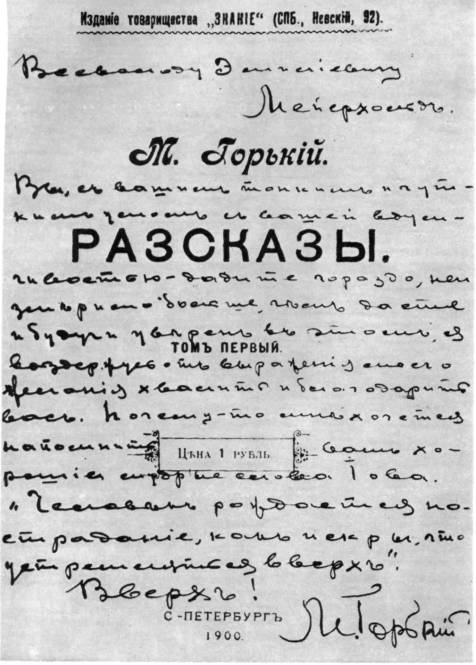 Изданіе товарищества „ЗНАНІЕ“ (СПБ., Невскій, 92).
Всеволоду Эмиліевичу
Мейерхольдъ.
М. Горькій.
Вы, съ вашимъ тонкимъ и чут-
кимъ умомъ, съ вашей вдум-
РАЗСКАЗЫ.
чивостью - дадите гораздо, неи-
змѣримо больше, чѣмъ даете
и будучи увѣренъ въ этомъ, я
ТОМЪ ПЕРВЫЙ.
воздержусь отъ выраженія моего
желанія хвалить и благодарить
васъ. Почему-то мнѣ хочется
напомнить вамъ хо-
Цѣна 1 рубль
рошія мудрые слова Іова.
„Человѣкъ рождается на
страданіе, какъ искры, что
устремляться вверхъ“.
Вверхъ!
С-ПЕТЕРБУРГЪ
1900.
М. Горькій